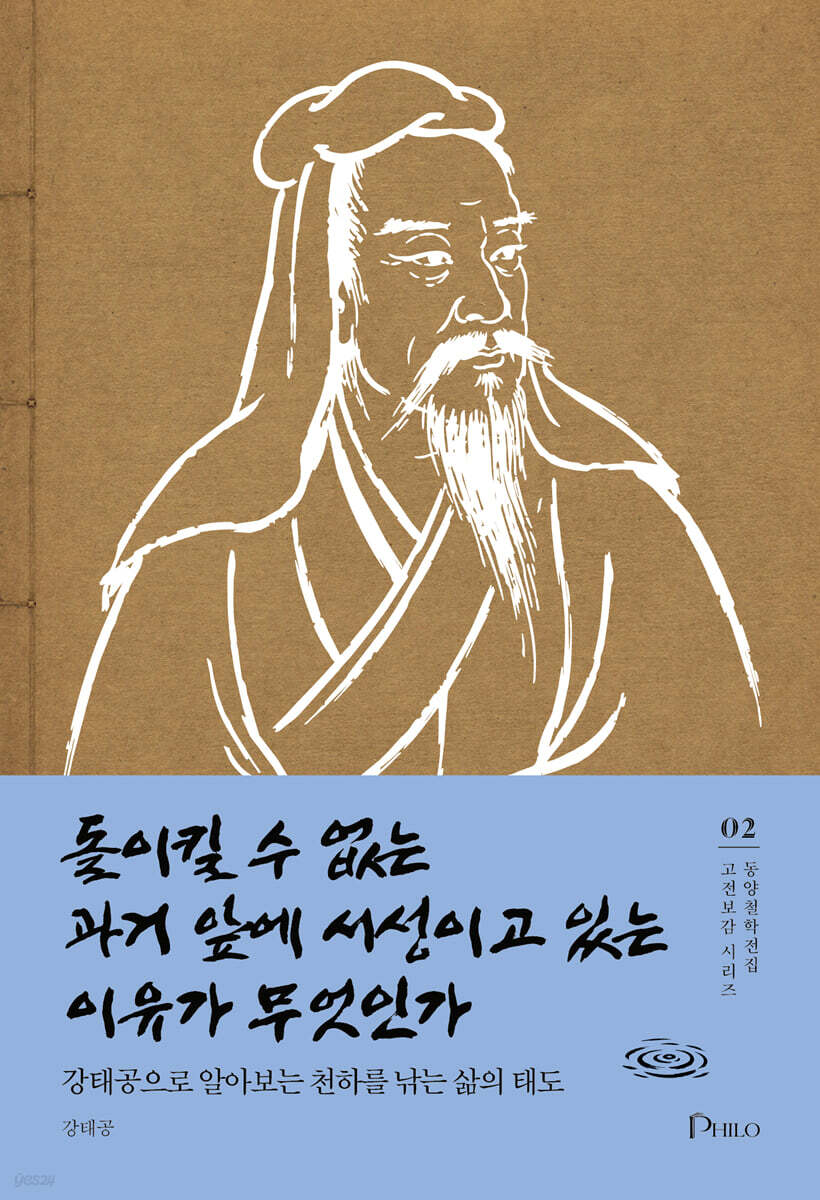 돌이킬 수 없는
과거 앞에 서성이고 있는
이유가 무엇인가
강태공으로 알아보는 천하를 낚는 삶의 태도
강태공
02
동양철학전집
고전보감 시리즈
PHILO
yes24